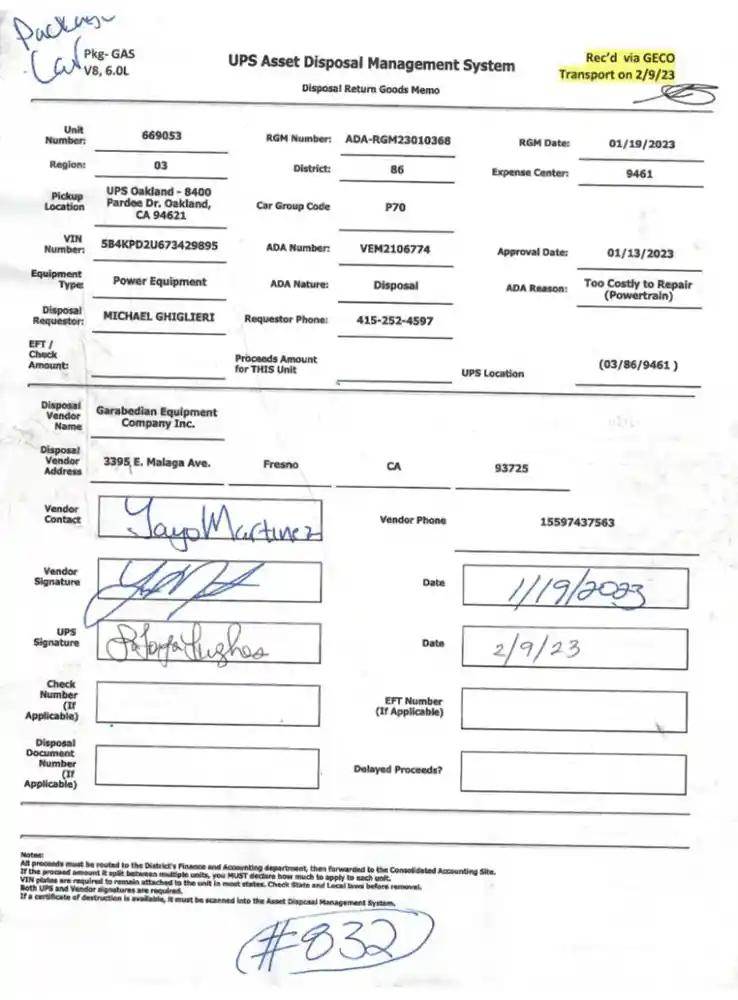 Package
Car
Pkg- GAS
V8, 6.0L
UPS Asset Disposal Management System
Disposal Return Goods Memo
Rec'd via GECO
Transport on 2/9/23
Unit Number: 669053 RGM Number: ADA-RGM23010368 RGM Date: 01/19/2023
Region: 03 District: 86 Expense Center: 9461
Pickup Location UPS Oakland - 8400 Pardee Dr. Oakland, CA 94621 Car Group Code P70
VIN Number: 5B4KPD2U673429895 ADA Number: VEM2106774 Approval Date: 01/13/2023
Equipment Type: Power Equipment ADA Nature: Disposal ADA Reason: Too Costly to Repair (Powertrain)
Disposal Requestor: MICHAEL GHIGLIERI Requestor Phone: 415-252-4597
EFT / Check Amount: Proceeds Amount for THIS Unit UPS Location (03/86/9461 )
Disposal Vendor Name Garabedian Equipment Company Inc.
Disposal Vendor Address 3395 E. Malaga Ave. Fresno CA 93725
Vendor Contact Yayo Martinez Vendor Phone 15597437563
Vendor Signature Date 1/19/2023
UPS Signature Hughes Date 2/9/23
Check Number (If Applicable) EFT Number (If Applicable)
Disposal Document Number (If Applicable) Delayed Proceeds?
Notes:
All proceeds must be routed to the District's Finance and Accounting department, then forwarded to the Consolidated Accounting Site.
If the proceed amount it split between multiple units, you MUST declare how much to apply to each unit.
VIN plates are required to remain attached to the unit in most states. Check State and Local laws before removal.
Both UPS and Vendor signatures are required.
If a certificate of destruction is available, it must be scanned into the Asset Disposal Management System.
#832